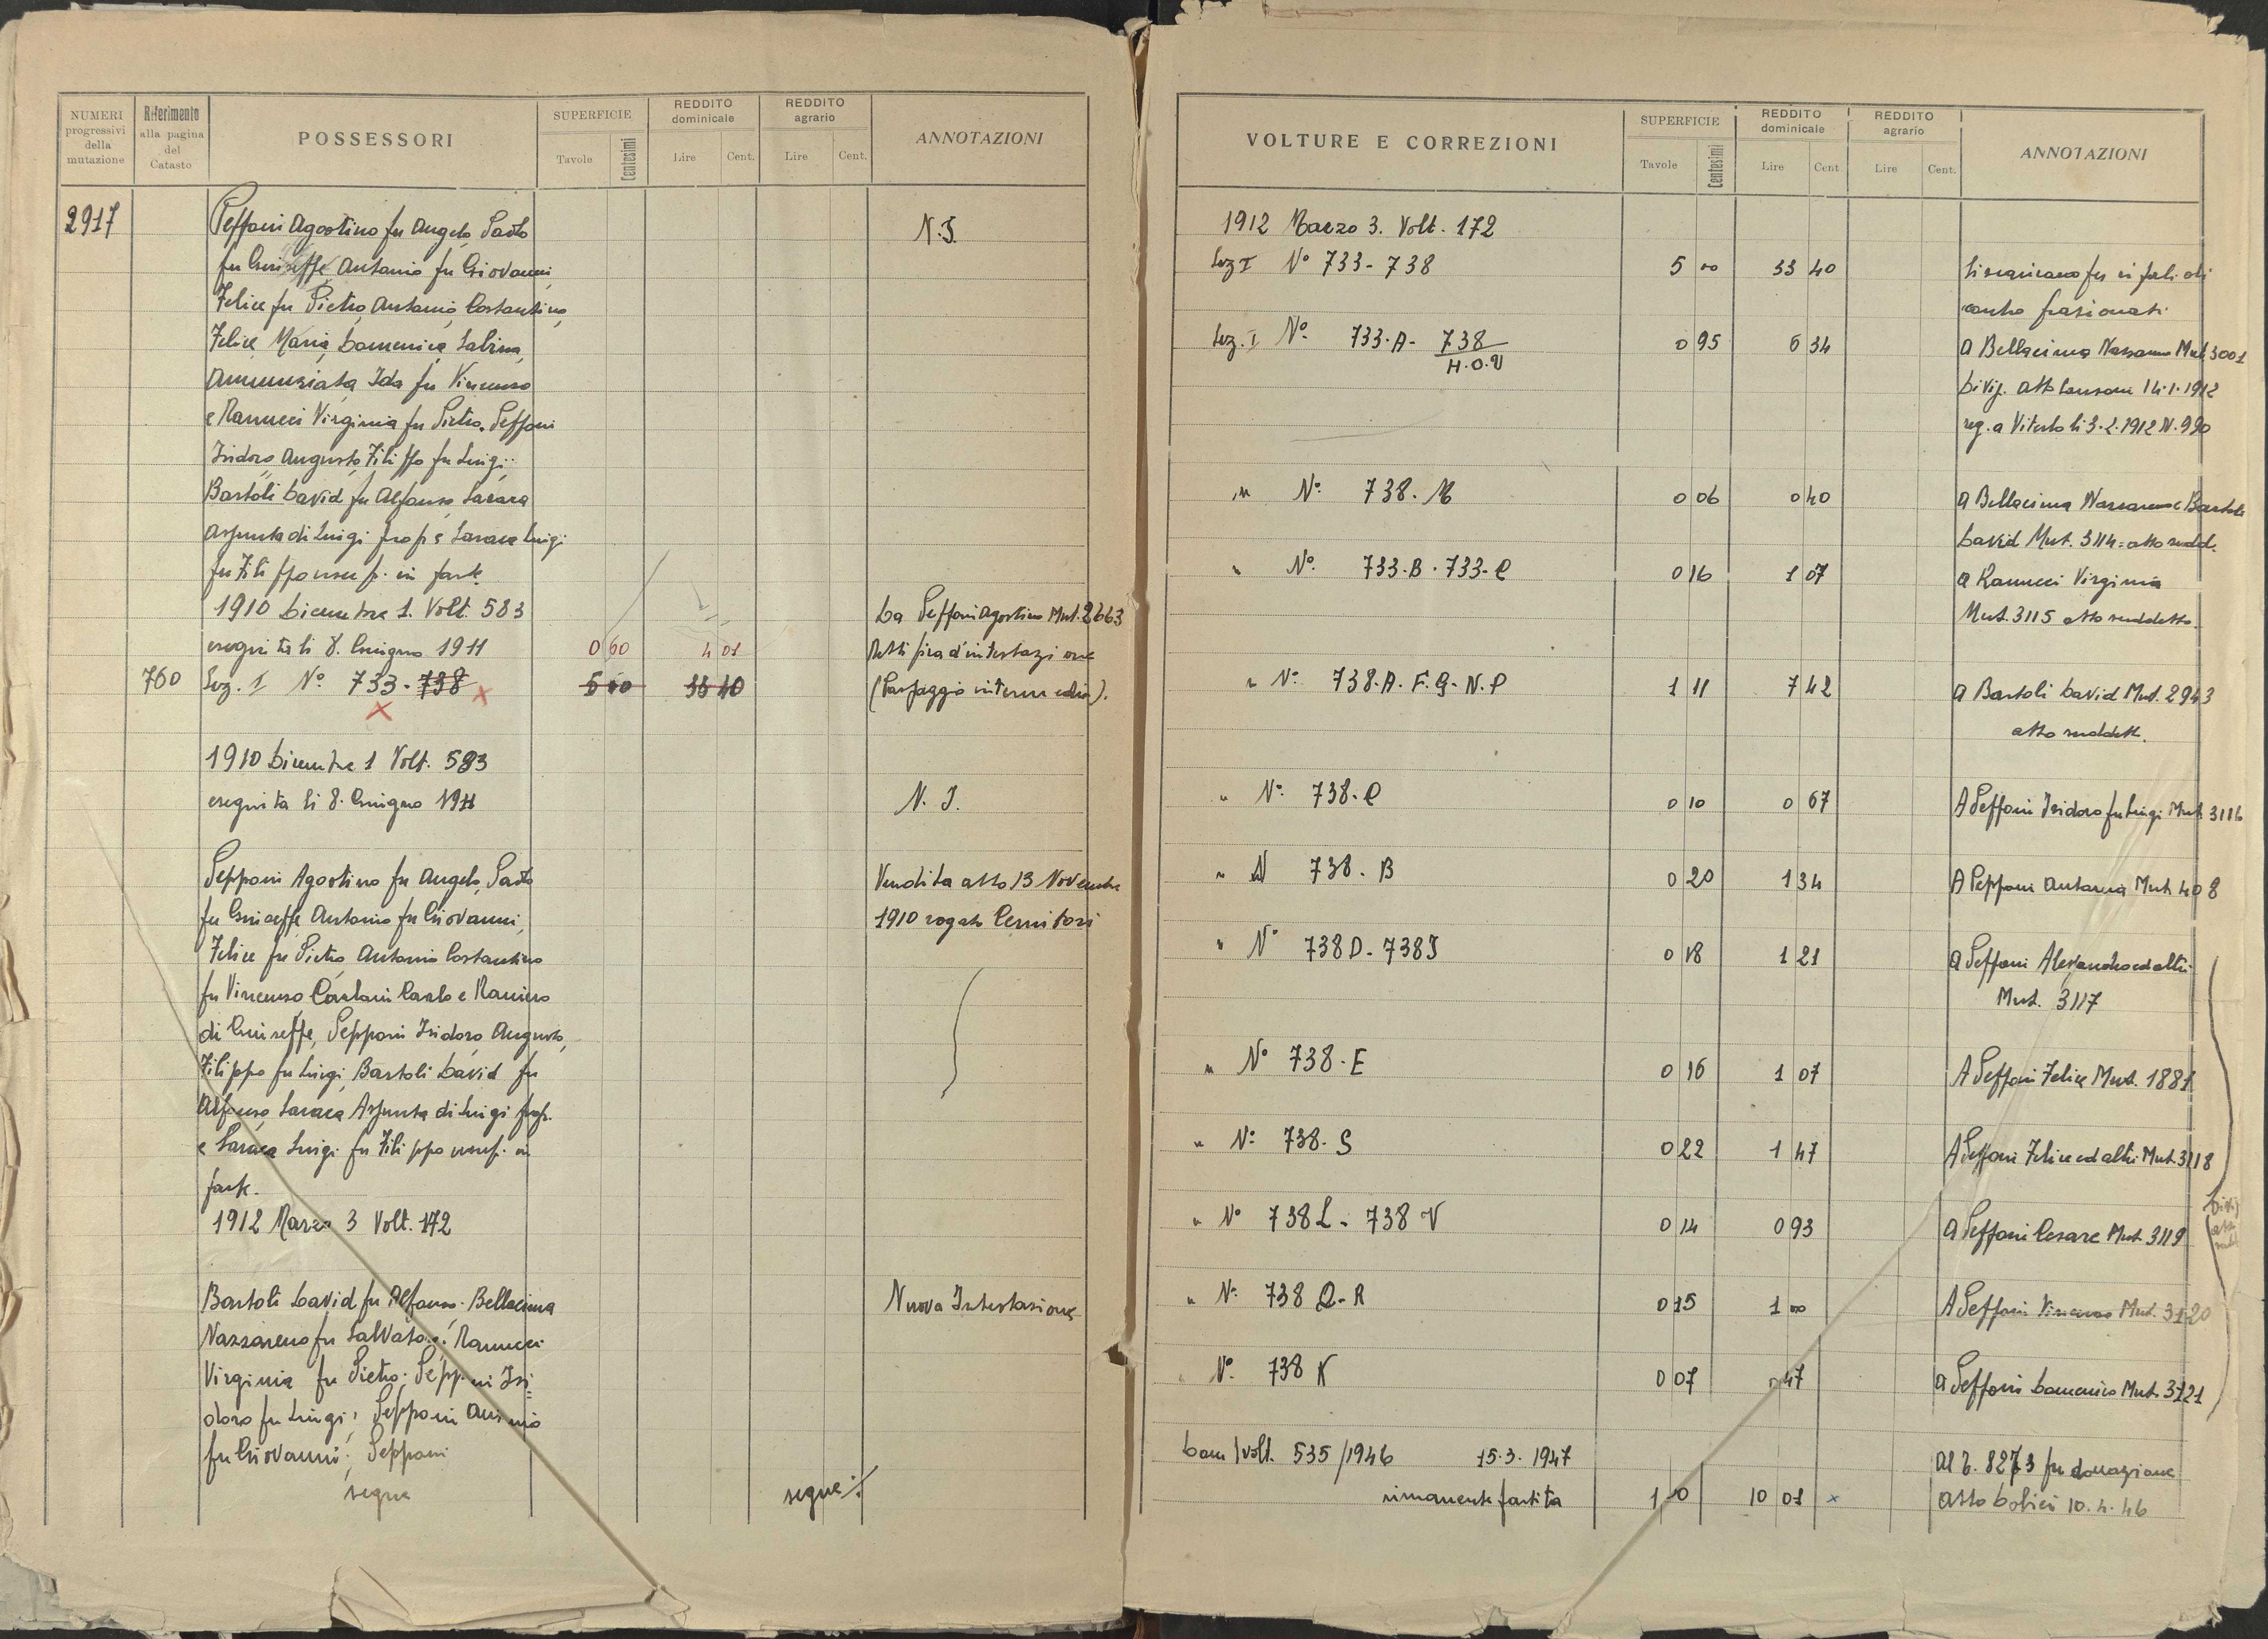 NUMERI progressivi della mutazione
Riferimento alla pagina del Catasto
POSSESSORI
SUPERFICIE
Tavole
Centesimi
REDDITO dominicale
Lire
Cent.
REDDITO agrario
Lire
Cent.
ANNOTAZIONI
2917
Pepponi Agostino fu Angelo, Paolo
N.I.
fu Giuseppe, Antonio fu Giovanni,
Felice fu Pietro, Antonio, Costantino,
Felice, Maria, Domenica, Sabina,
Annunziata, Ida fu Vincenzo
e Ranucci Virginia fu Pietro. Pepponi
Isidoro, Augusto, Filippo fu Luigi;
Bartoli David fu Alfonso, Saraca
Assunta di Luigi prop. e Saraca Luigi
fu Filippo usuf. in parte.
1910 Dicembre 1. Volt. 583
Da Pepponi Agostino Mut. 2663
eseguita li 8. Giugno 1911
0 60
4 01
Rettifica d'intestazione
760
Sez. I Nº 733-738
5 60
33 40
(Passaggio intermedio).
1910 Dicembre 1 Volt. 583
eseguita li 8. Giugno 1911
N. I.
Pepponi Agostino fu Angelo, Paolo
Vendita atto 13 Novembre
fu Giuseppe, Antonio fu Giovanni,
1910 rogato
Felice fu Pietro, Antonio Costantino
fu Vincenzo Carlo e Raniero
di Giuseppe, Pepponi Isidoro, Augusto,
Filippo fu Luigi, Bartoli David fu
Alfonso, Saraca Assunta di Luigi prop.
e Saraca Luigi fu Filippo usuf. in
parte.
1912 Marzo 3 Volt. 172
Bartoli David fu Alfonso; Bellacima
Nuova Intestazione
Nazzareno fu Salvatore; Ranucci
Virginia fu Pietro; Pepponi Isi=
doro fu Luigi; Pepponi Antonio
fu Giovanni; Pepponi
segue
segue ./.
VOLTURE E CORREZIONI
SUPERFICIE
Tavole
Centesimi
REDDITO dominicale
Lire
Cent
REDDITO agrario
Lire
Cent.
ANNOTAZIONI
1912 Marzo 3. Volt. 172
Sez I Nº 733-738
5 00
33 40
Sez. I Nº 733.A- 738/H.O.U
0 95
6 34
A Bellacima Nazzareno Mut. 3001
14.1.1912
reg. a Viterbo li 3.2.1912 N. 990
" Nº 738. M
0 06
0 40
A Bellacima Nazzareno e Bartoli
David Mut. 3114 = atto sudd.
" Nº 733.B. 733-C
0 16
1 07
A Ranucci Virginia
Mut. 3115 atto suddetto.
" Nº 738.A.F.G.N.P
1 11
7 42
A Bartoli David Mut. 2943
atto suddett.
" Nº 738.C
0 10
0 67
A Pepponi Isidoro fu Luigi Mut 3116
" N 738. B
0 20
1 34
A Pepponi Antonio Mut 408
" Nº 738 D- 738 I
0 18
1 21
A Pepponi Alessandro ed altri
Mut. 3117
" Nº 738.E
0 16
1 07
A Pepponi Felice Mut. 1881
" Nº 738. S
0 22
1 47
A Pepponi Felice ed altri Mut. 3118
" Nº 738 L- 738 V
0 14
0 93
A Pepponi Cesare Mut. 3119
" Nº 738 Q-R
0 15
1 00
A Pepponi Vincenzo Mut. 3120
" Nº 738 K
0 07
0 47
A Pepponi Domenico Mut. 3121
Dom/Volt. 535/1946 15.3.1947
Al P. 8273 fu donazione
rimanente partita
10 01
x
atto 10.4.46